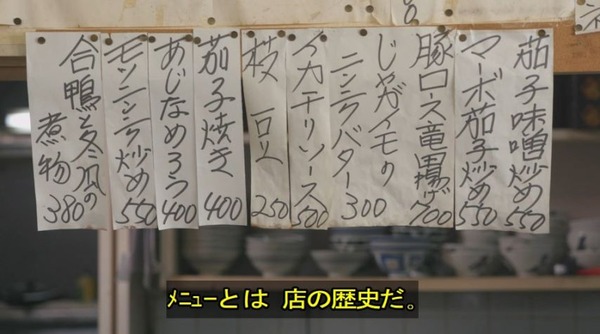 茄子味噌炒め 550
マーボ茄子炒め 550
豚ロース竜田揚げ 700
じゃがイモの
ニンニクバター 300
イカチリソース 500
枝豆 250
茄子焼き 400
あじなめろう 400
モツニンニク炒め 550
合鴨と冬瓜の
煮物 380
ﾒﾆｭｰとは 店の歴史だ。